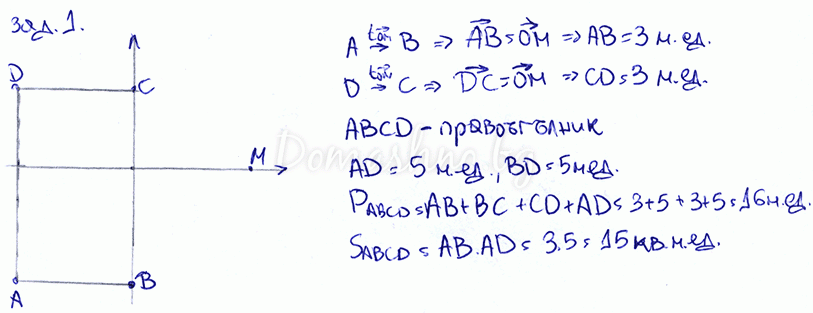 зад. 1.
D
C
M
A
B
A → B ⇒ AB = OM ⇒ AB = 3 м.ед.
D → C ⇒ DC = OM ⇒ CD = 3 м.ед.
ABCD - правоъгълник
AD = 5 м.ед., BD = 5 м.ед.
PABCD = AB + BC + CD + AD = 3 + 5 + 3 + 5 = 16 м.ед.
SABCD = AB . AD = 3.5 = 15 кв.м.ед.